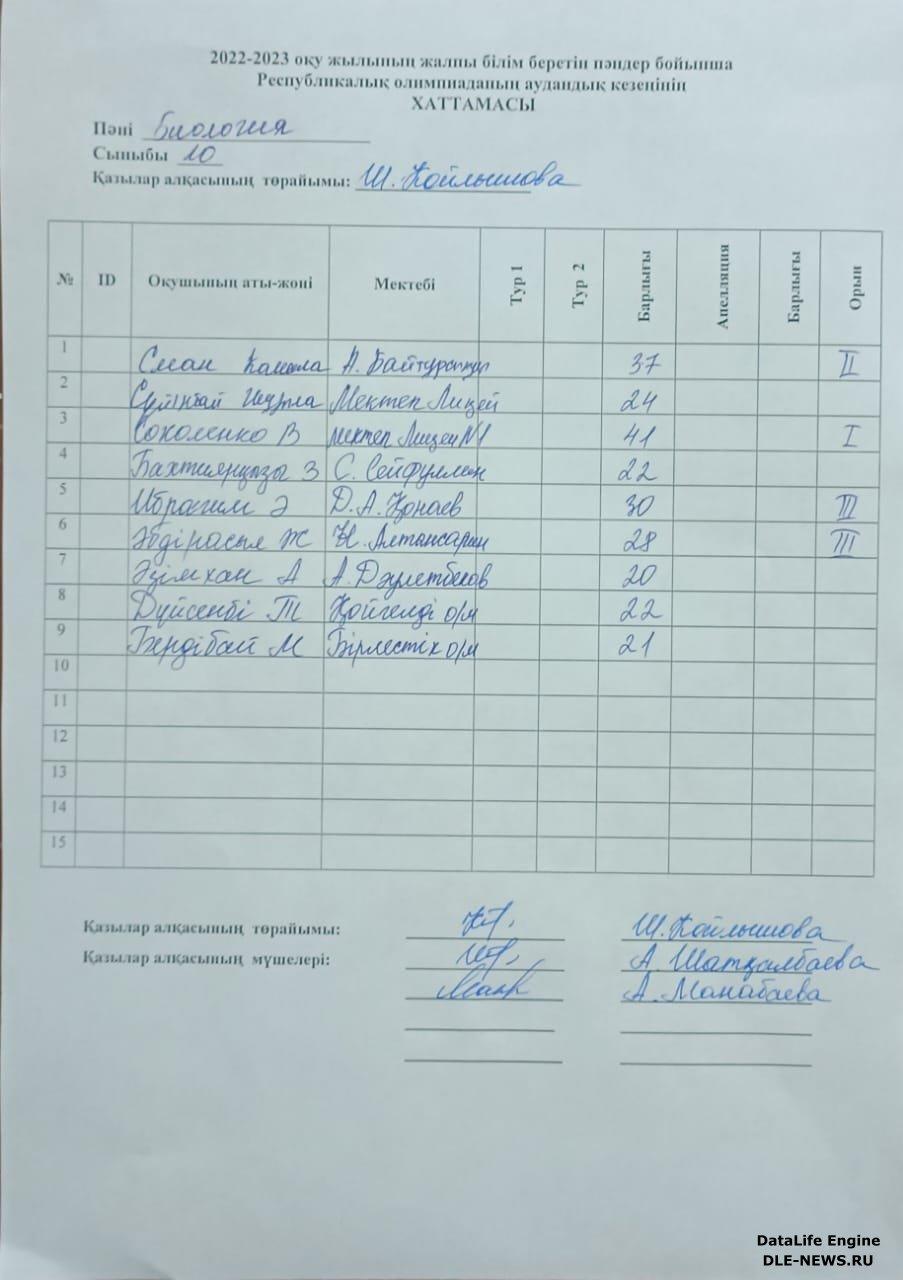 2022-2023 оқу жылының жалпы білім беретін пәндер бойынша
Республикалық олимпиаданың аудандық кезеңінің
ХАТТАМАСЫ
Пәні Биология
Сыныбы 10
Қазылар алқасының төрайымы: Ш. Қойлышова
№ ID Оқушының аты-жөні Мектебі Тур 1 Тур 2 Барлығы Апелляция Барлығы Орын
1 Сман А. Байтұрсынұлы 37 II
2 Мектеп Лицей 24
3 Соколенко В мектеп Лицей N1 41 I
4 Бахтиярқызы З С. Сейфуллин 22
5 Ибрагим Ә Д.А. Қонаев 30 III
6 Әбдірасыл Ж Ы. Алтынсарин 28 III
7 Әзімхан А А. Дәулетбеков 20
8 Дүйсенбі Т Қойгелді о/м 22
9 Бердібай М Бірлестік о/м 21
10
11
12
13
14
15
Қазылар алқасының төрайымы: Ш. Қойлышова
Қазылар алқасының мүшелері: А. Шатқалбаева
А. Манабаева
DataLife Engine
DLE-NEWS.RU